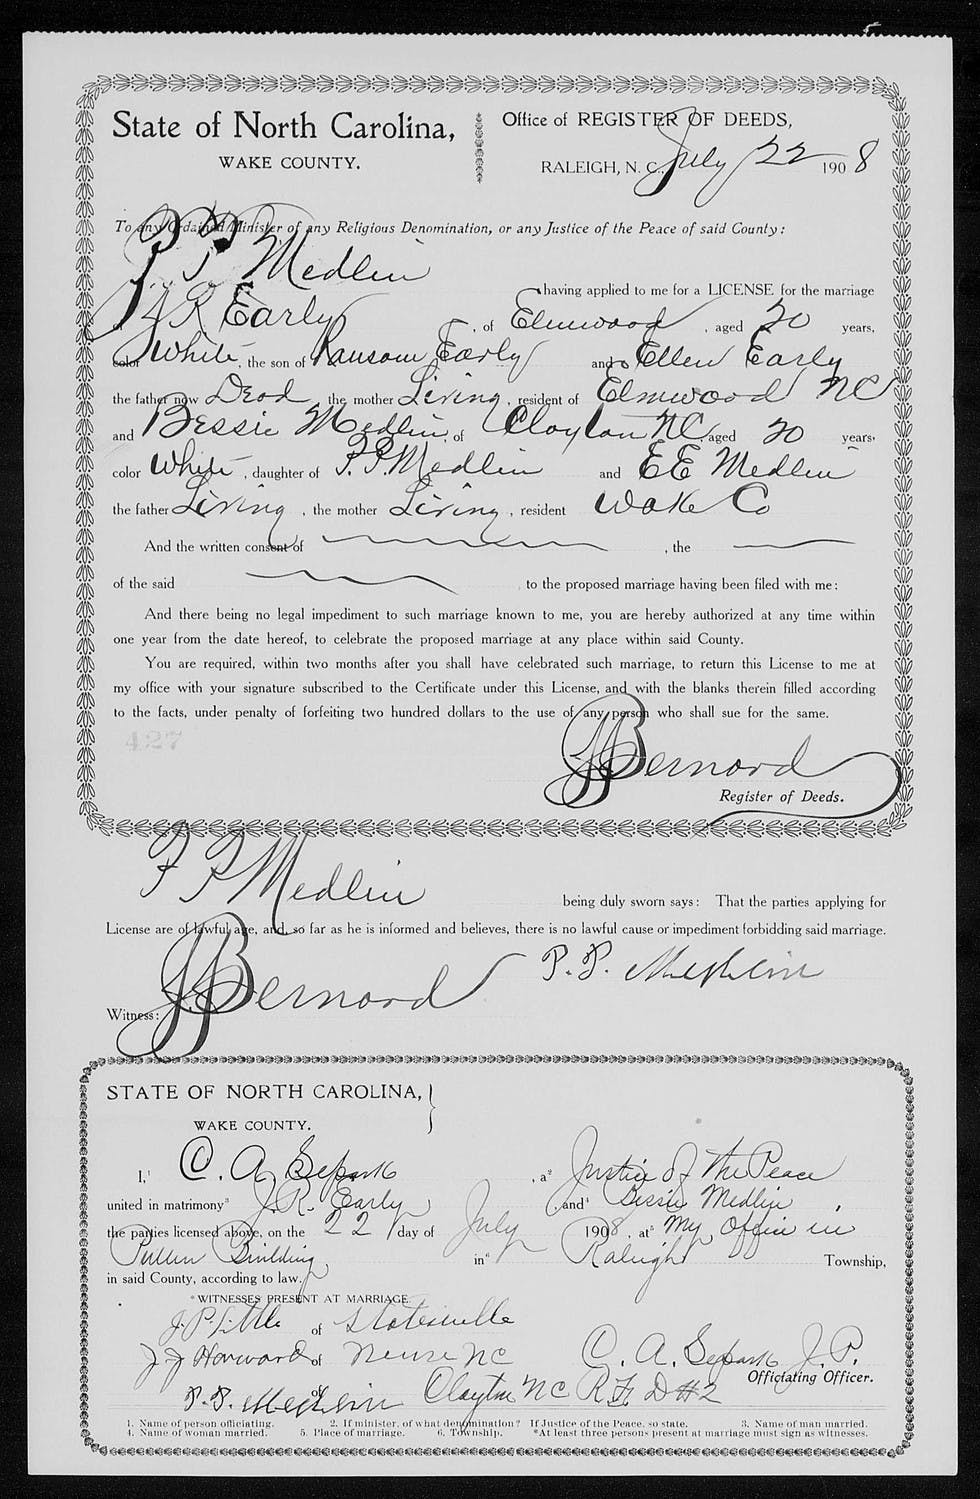 State of North Carolina,
WAKE COUNTY.
Office of REGISTER OF DEEDS,
RALEIGH, N. C., July 22 1908
To any Ordained Minister of any Religious Denomination, or any Justice of the Peace of said County:
P. P. Medlin having applied to me for a LICENSE for the marriage
of J R Early, of Elmwood, aged 20 years,
color White, the son of Ransom Early and Ellen Early
the father now Dead, the mother Living, resident of Elmwood NC
and Bessie Medlin, of Clayton NC aged 20 years,
color White, daughter of P. P. Medlin and EE Medlin
the father Living, the mother Living, resident Wake Co
And the written consent of , the
of the said to the proposed marriage having been filed with me:
And there being no legal impediment to such marriage known to me, you are hereby authorized at any time within
one year from the date hereof, to celebrate the proposed marriage at any place within said County.
You are required, within two months after you shall have celebrated such marriage, to return this License to me at
my office with your signature subscribed to the Certificate under this License, and with the blanks therein filled according
to the facts, under penalty of forfeiting two hundred dollars to the use of any person who shall sue for the same.
427
JJ Bernard
Register of Deeds.
P P Medlin being duly sworn says: That the parties applying for
License are of lawful age, and, so far as he is informed and believes, there is no lawful cause or impediment forbidding said marriage.
P. P. Medlin
Witness: JJ Bernard
STATE OF NORTH CAROLINA,
WAKE COUNTY.
I,¹ C. A. Separk, a² Justice of the Peace
united in matrimony³ J. R. Early, and⁴ Bessie Medlin,
the parties licensed above, on the 22 day of July 1908, at⁵ My Office in
Pullen Building, in⁶ Raleigh Township,
in said County, according to law.
*WITNESSES PRESENT AT MARRIAGE.
J. P. Little of Statesville
J J Horward of Neuse NC
C. A. Separk J. P.
Officiating Officer.
P. P. Medlin of Clayton NC R F D #2
1. Name of person officiating. 2. If minister, of what denomination? If Justice of the Peace, so state. 3. Name of man married.
4. Name of woman married. 5. Place of marriage. 6. Township. *At least three persons present at marriage must sign as witnesses.